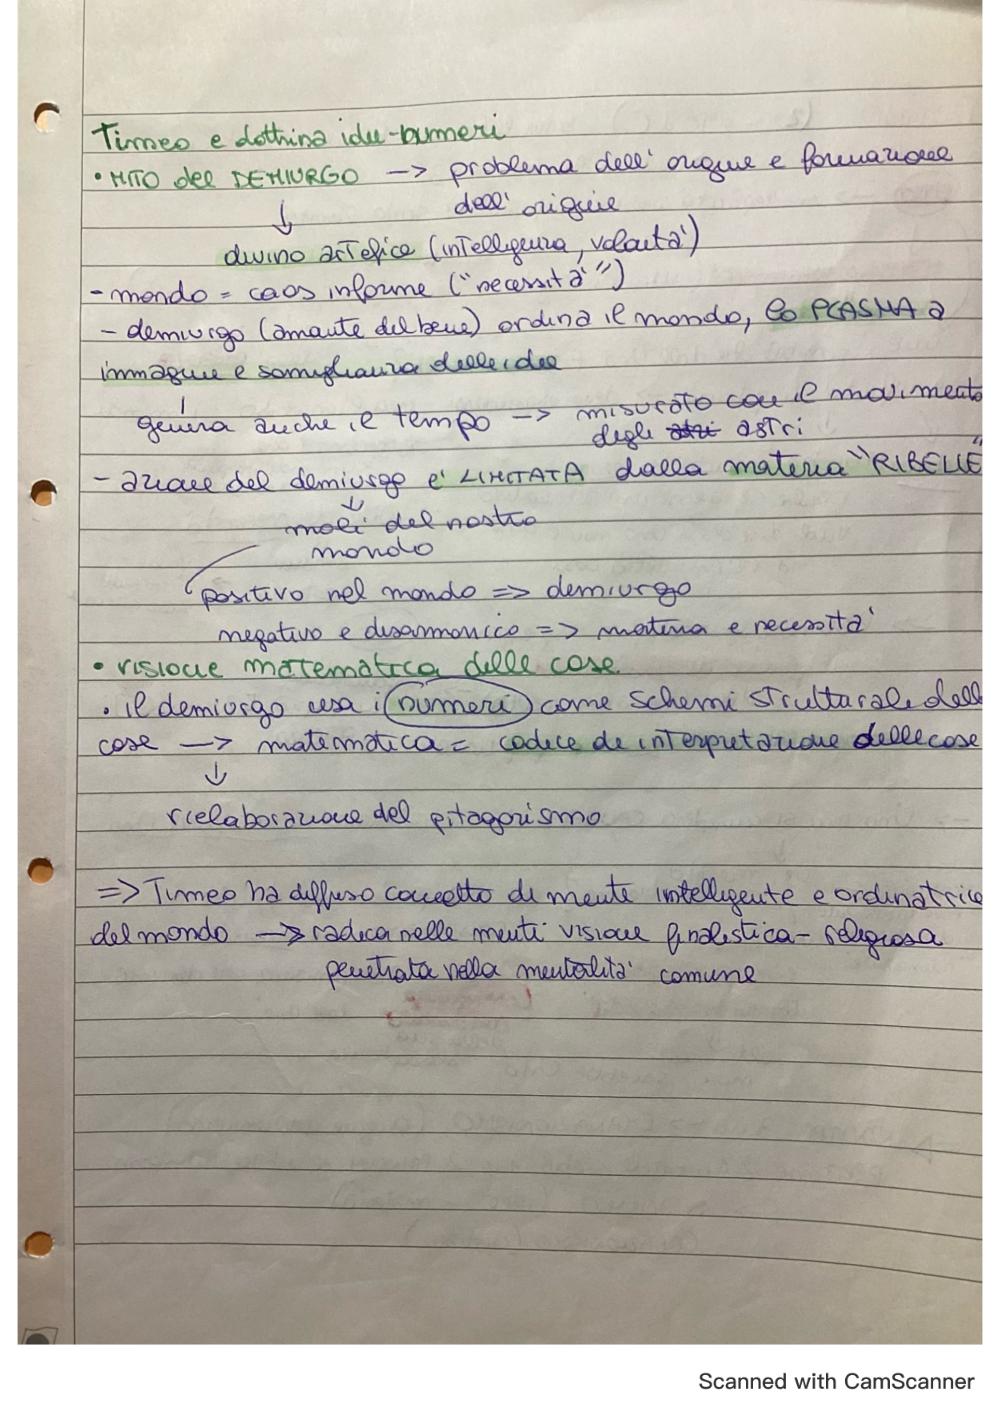 Timeo e dottrina idee-numeri
• MITO del DEMIURGO -> problema dell'origine e formazione
dell'origine
↓
divino artefice (intelligenza, volontà)
- mondo = caos informe ("necessità")
- demiurgo (amante del bene) ordina il mondo, lo PLASMA a
immagine e somiglianza delle idee
genera anche il tempo -> misurato con il movimento
degli astri
- azione del demiurgo e' LIMITATA dalla materia "RIBELLE"
↓
mali del nostro
mondo
positivo nel mondo => demiurgo
negativo e disarmonico => materia e necessità
• visione matematica delle cose
• il demiurgo usa i numeri come schemi strutturali delle
cose -> matematica = codice di interpretazione delle cose
↓
rielaborazione del pitagorismo
=> Timeo ha diffuso concetto di mente intelligente e ordinatrice
del mondo -> radica nelle menti visione finalistica-religiosa
penetrata nella mentalità comune
Scanned with CamScanner